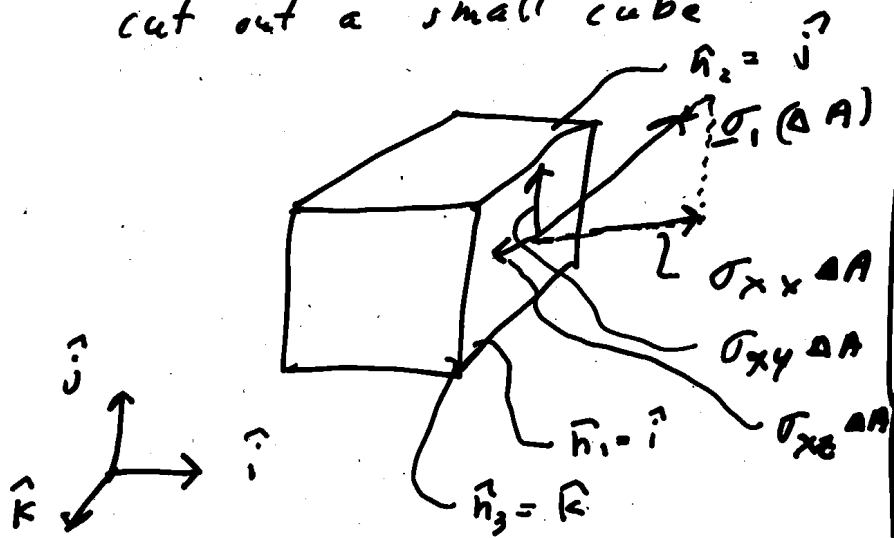 cut out a small cube
n̂₂ = ĵ
σ₁(ΔA)
σxx ΔA
σxy ΔA
σxz ΔA
n̂₁ = î
n̂₃ = k̂
ĵ
î
k̂